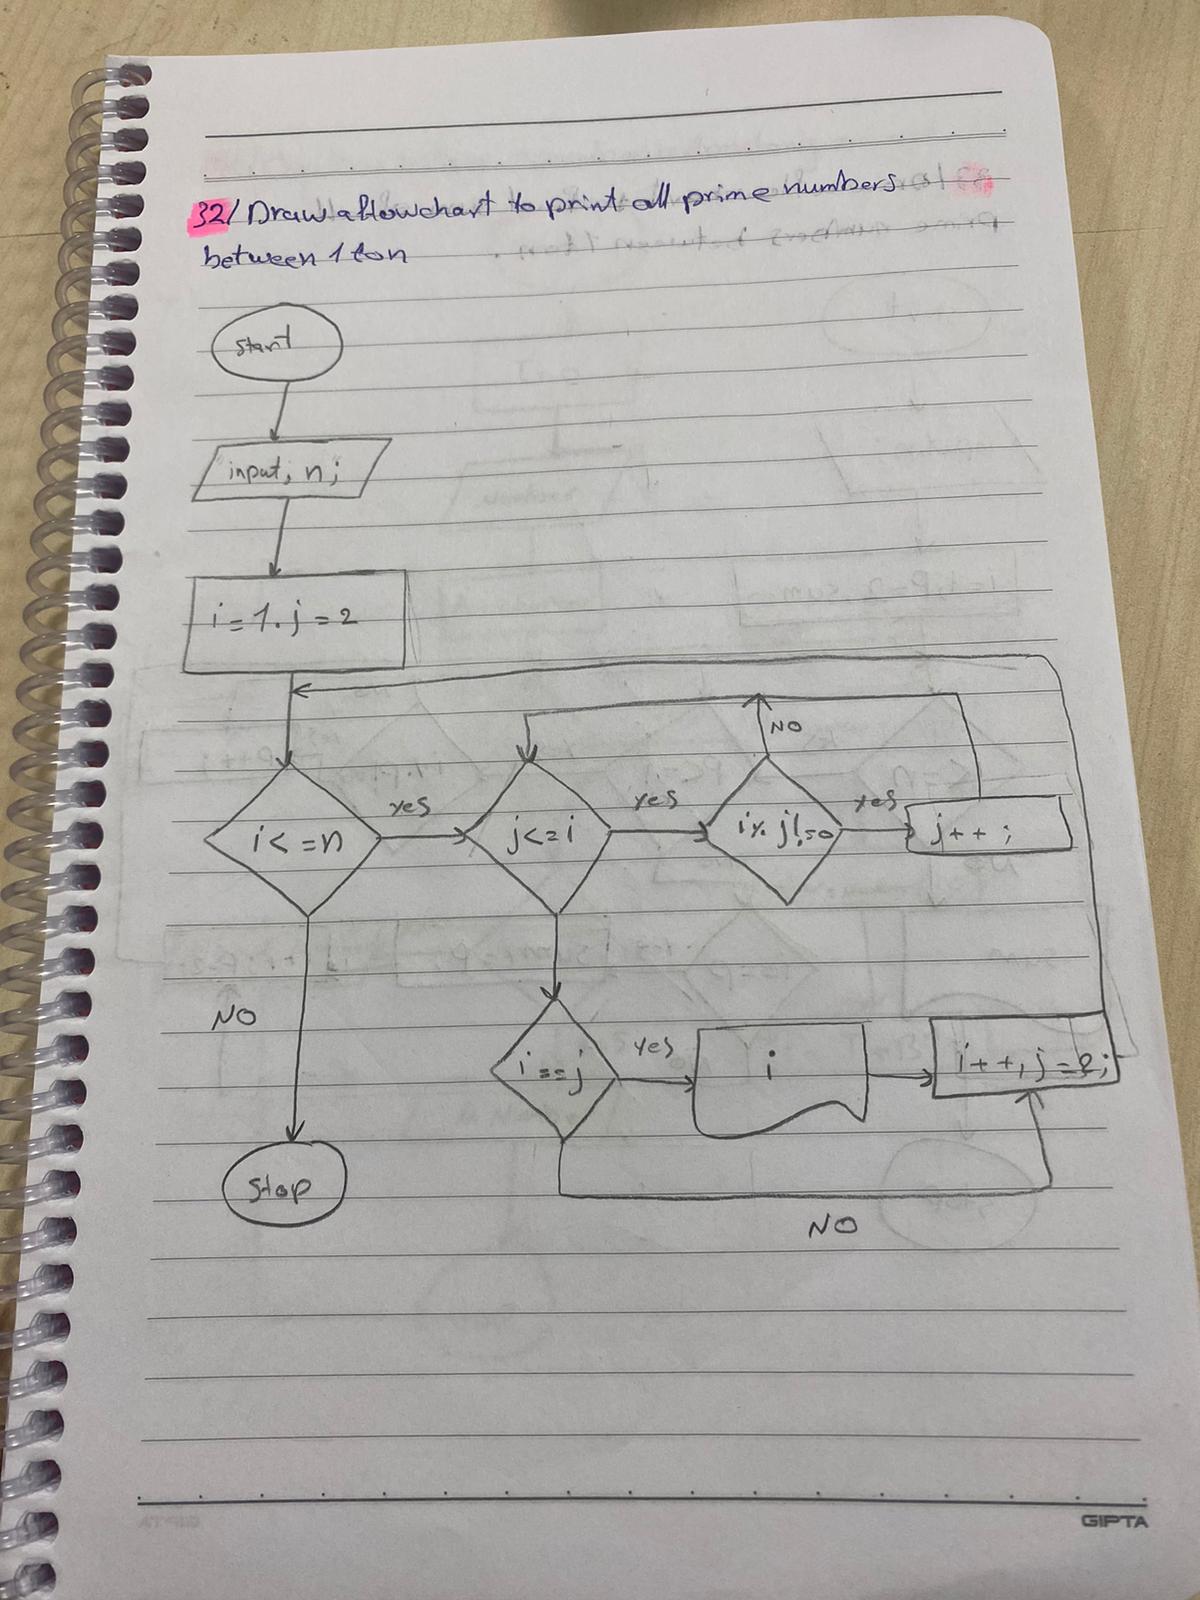 32/ Draw a flowchart to print all prime numbers
between 1 to n
start
input, n;
i = 1. j = 2
NO
i <= n
yes
j <= i
yes
i % j != 0
yes
j++ ;
NO
i == j
yes
i
i++, j = 2;
stop
NO
GIPTA